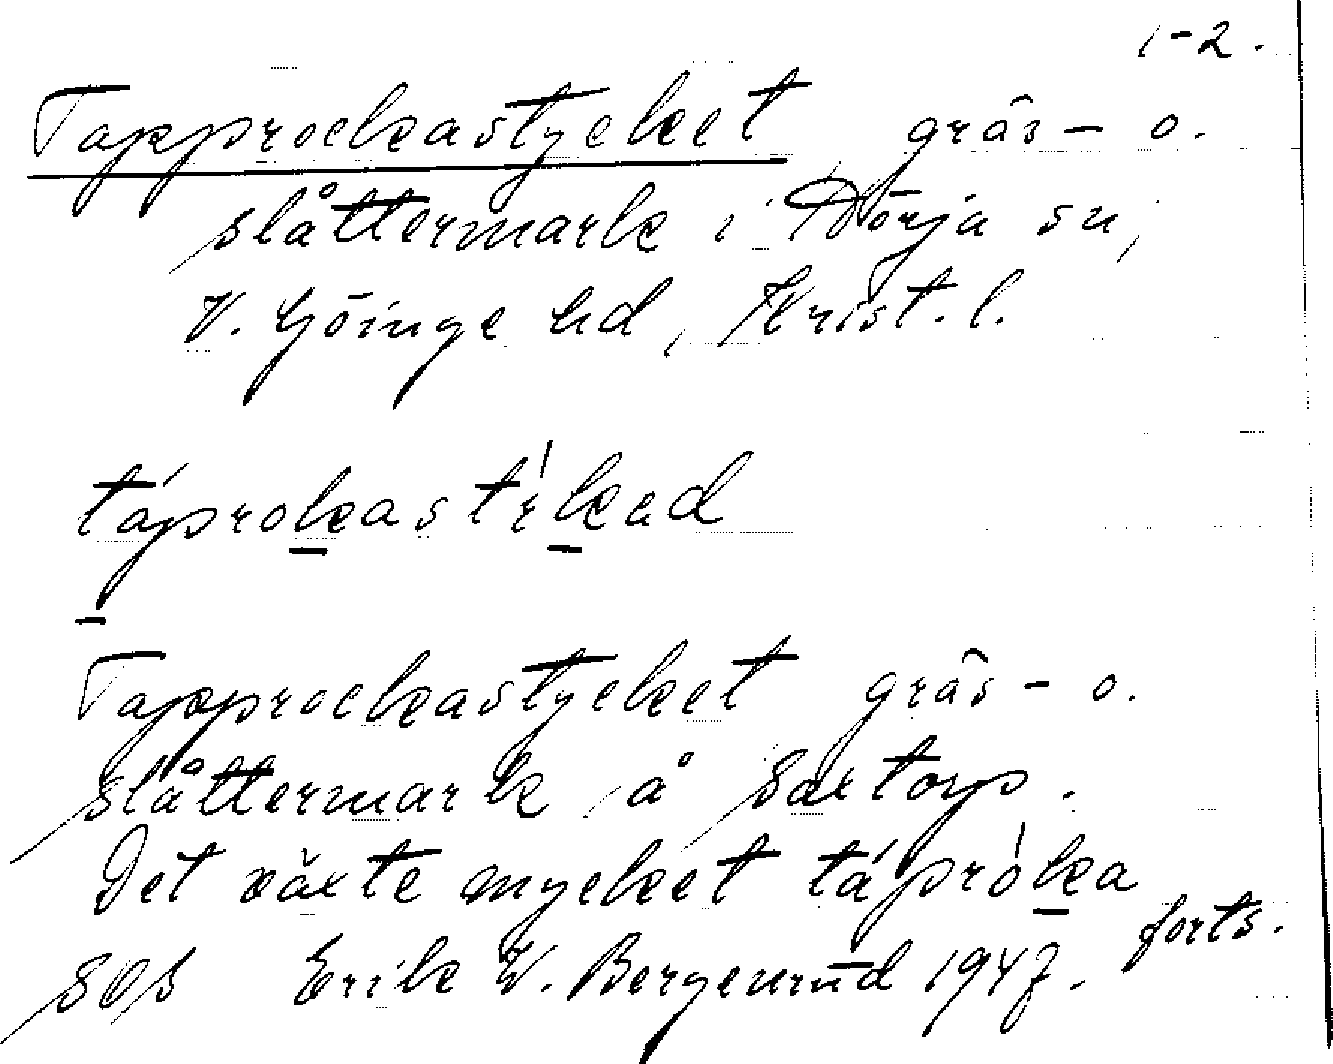 1-2.
Tapprockastycket gräs- o.
slåttermark i Nörja sn,
V. Göinge hd, Krist. l.
táprokast'ikad
Tapprockastycket gräs- o.
slåttermark å Saxtorp.
Det växte mycket tápròka
forts.
Erik W. Bergenrud 1947.